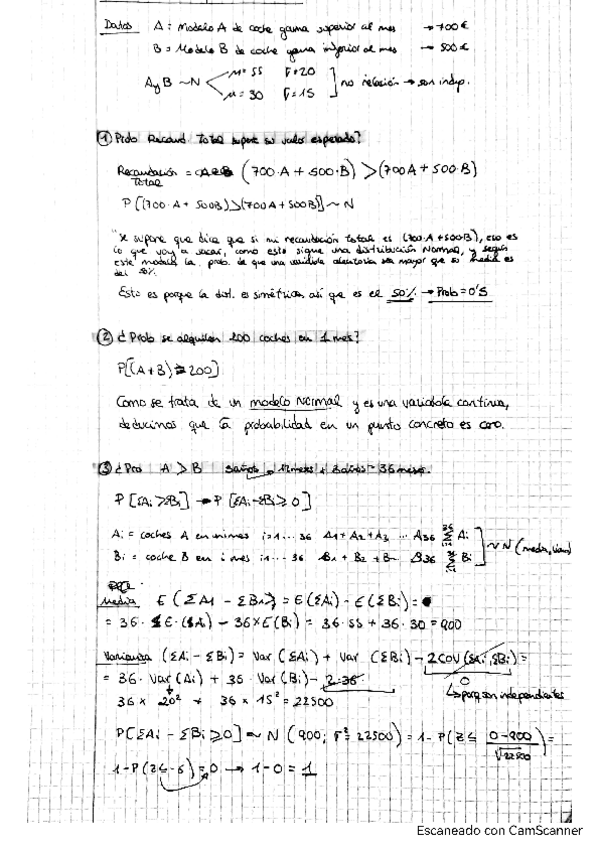 Datos A: Modelo A de coche gama superior al mes → 700€
B = Modelo B de coche gama inferior al mes → 500€
A y B ~ N μ=55 σ=20
μ=30 σ=15 no relación → son indep.
① Prob Recaud. Total supere su valor esperado?
Recaudación Total = (700·A + 500·B) > (700A + 500·B)
P[(700·A + 500B) > (700A + 500B)] ~ N
"Se supone que dice que si mi recaudación total es (700·A + 500B), eso es
lo que voy a sacar, como esto sigue una distribución Normal, y según
este modelo la prob. de que una variable aleatoria sea mayor que su media es
del 50%
Esto es porque la dist. es simétrica, así que es el 50% → Prob = 0'5
② ¿Prob se alquilen 200 coches en 1 mes?
P[(A+B) = 200]
Como se trata de un modelo Normal y es una variable continua,
deducimos que la probabilidad en un punto concreto es cero.
③ ¿Prob A > B 3 años 12 meses 36 meses.
P[ΣAi > ΣBi] → P[ΣAi - ΣBi ≥ 0]
Ai = coches A en i meses i=1...36 A1 + A2 + A3 ... A36 Σ Ai
Bi = coche B en i mes i=1...36 B1 + B2 + B... B36 Σ Bi ~ N (media, )
Media E(ΣAi - ΣBi) = E(ΣAi) - E(ΣBi) =
= 36 · E(Ai) - 36 × E(Bi) = 36·55 + 36·30 = 900
Varianza (ΣAi - ΣBi) = Var(ΣAi) + Var(ΣBi) - 2Cov(ΣAi, ΣBi) =
= 36 · Var(Ai) + 36 · Var(Bi) - 2·36 0
↳ porq son independientes
36 × 20² + 36 × 15² = 22500
P[ΣAi - ΣBi ≥ 0] ~ N (900; σ² = 22500) = 1 - P(Z ≤ 0-900/√22500) =
1 - P(Z ≤ -6) = 0 → 1 - 0 = 1
Escaneado con CamScanner